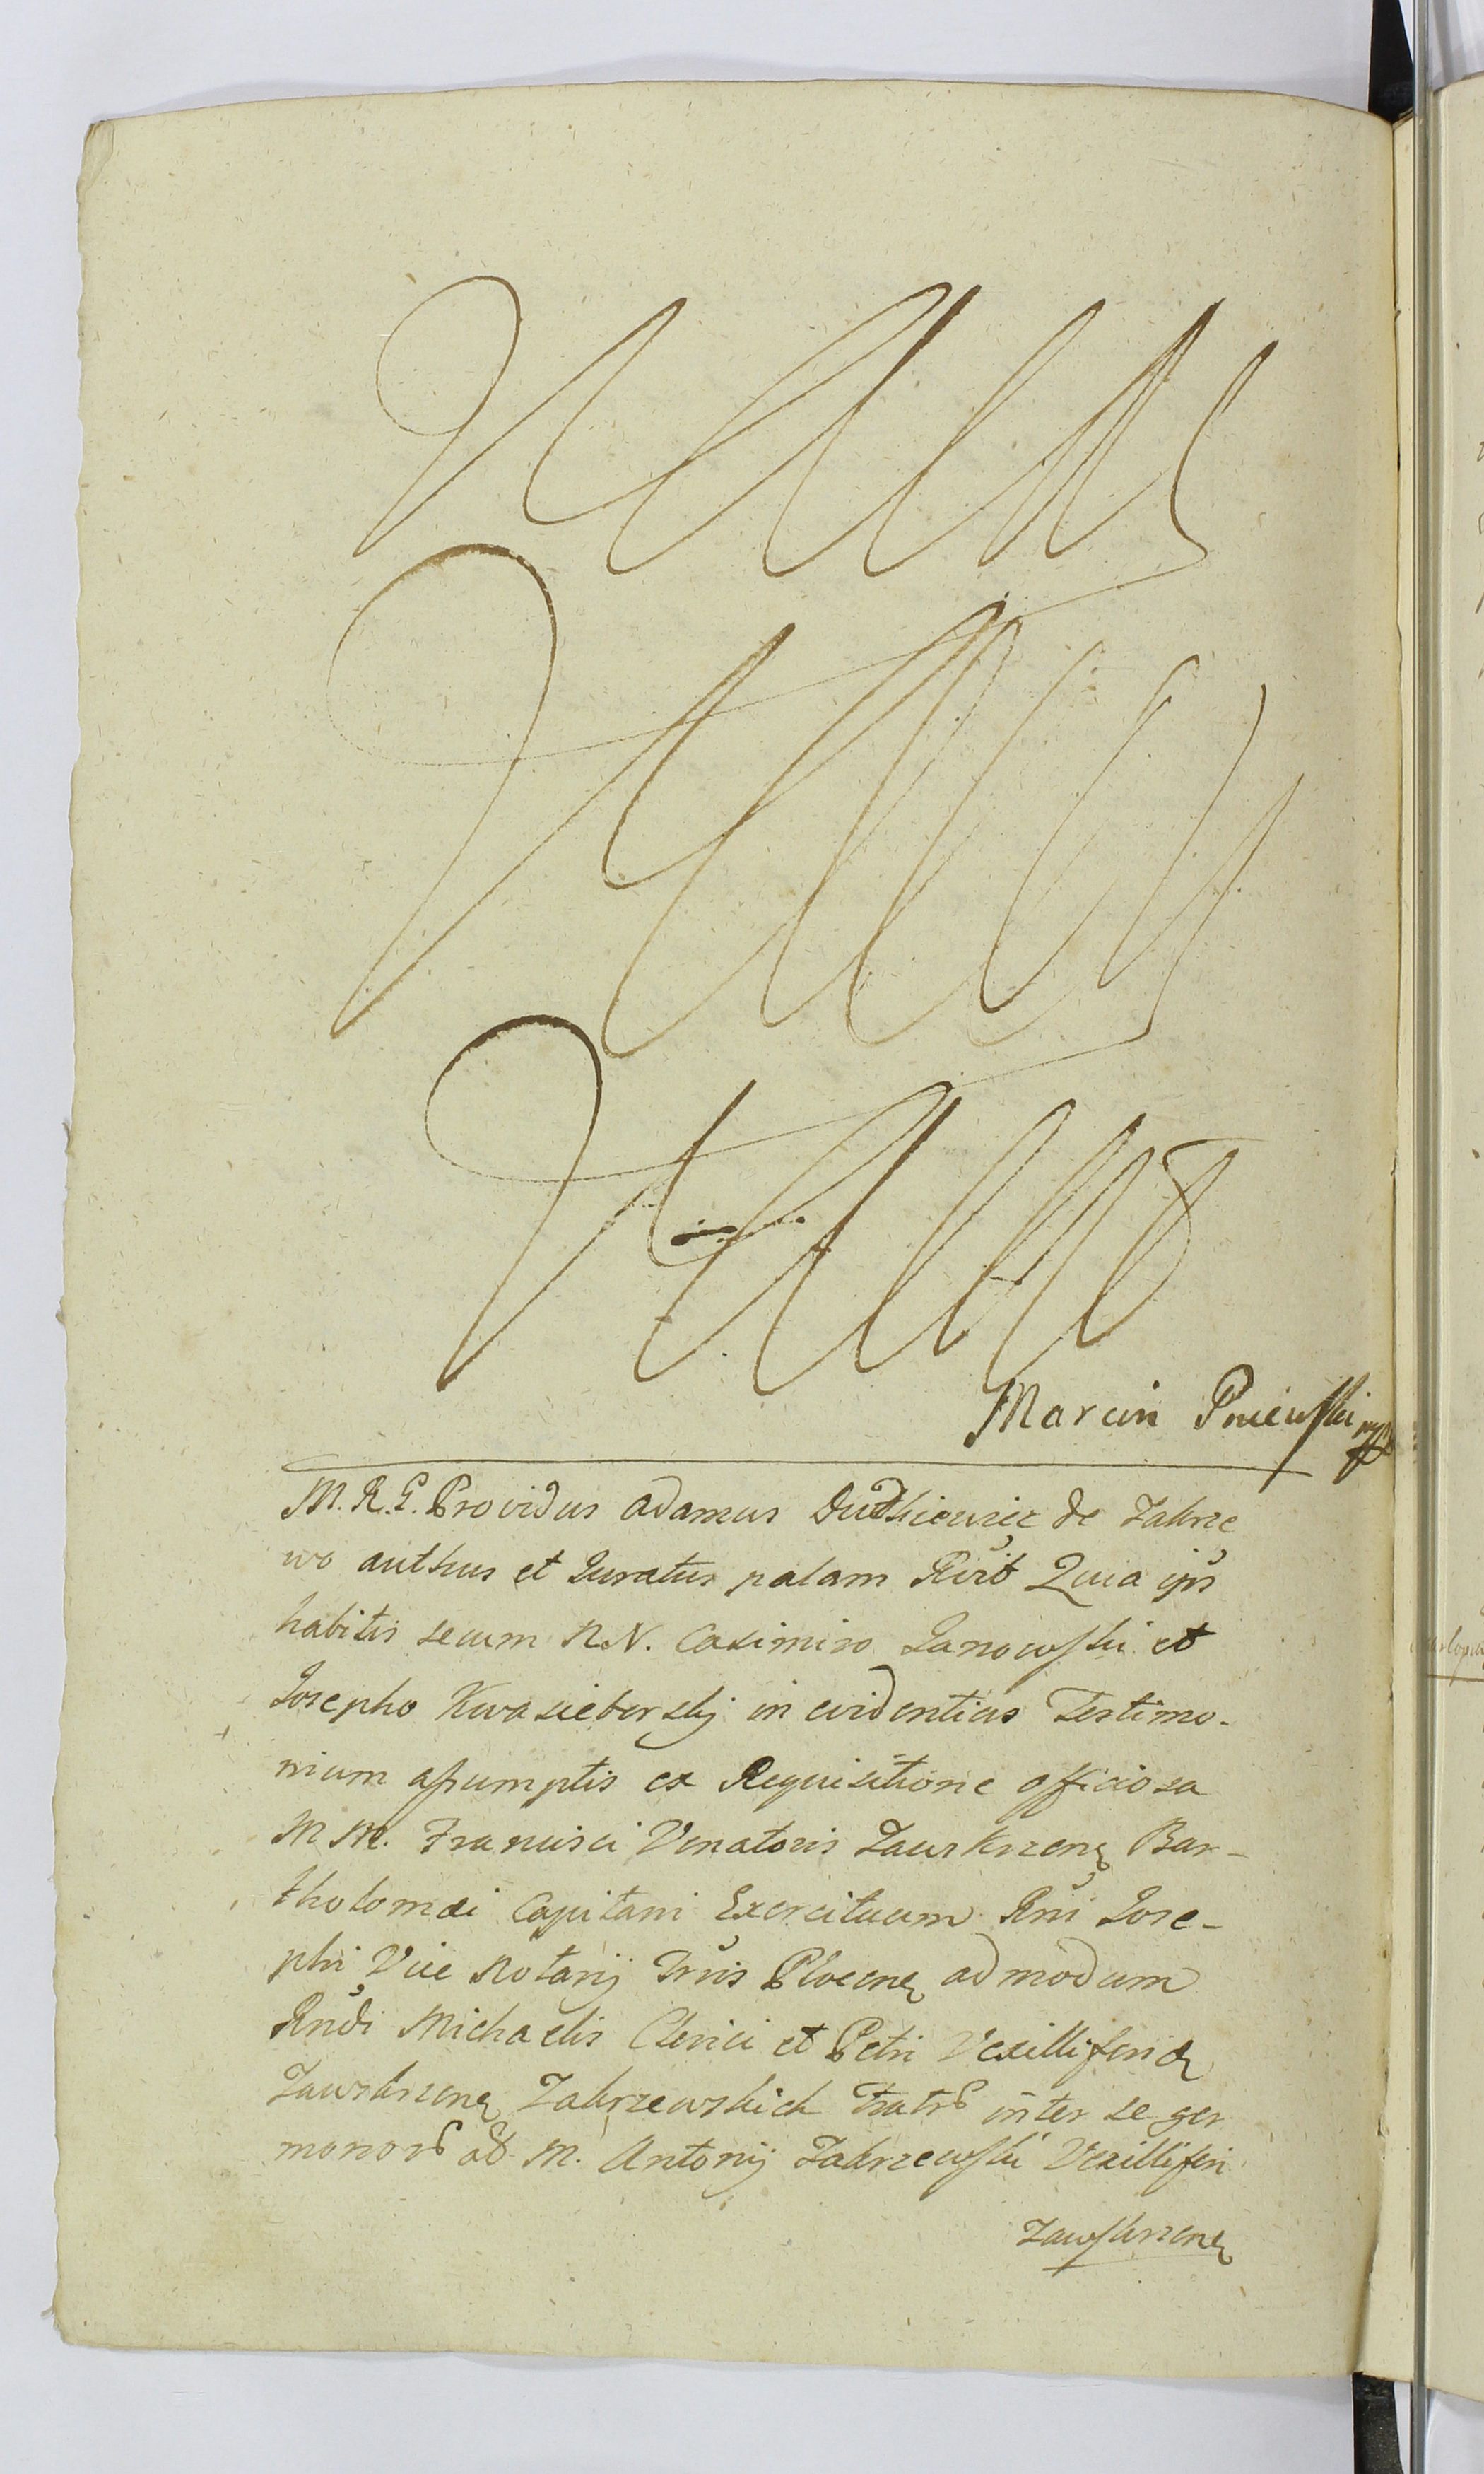 Marcin Pniewski mp
M. R. G. Providus Adamus Dudkiewicz de Zakrze
wo authus et Juratus palam Rvit Quia ips
habitis secum NN. Casimiro Janowski et
Josepho Kwasieborskj in evidentius Testimo-
nium assumptis ex Requisitione officiosa
M M. Francisci Venatoris Zawskrzenę Bar-
tholomæi Capitani Exercituum Rni Jose-
phi Vice Notarij Trris Plocenę admodum
Rndi Michaelis Clerici et Petri Vexilliferidę
Zawskrzenę Zakrzewskich fratr inter se ger
manor ad M. Antonij Zakrzewski Vexilliferi
Zawskrzenę